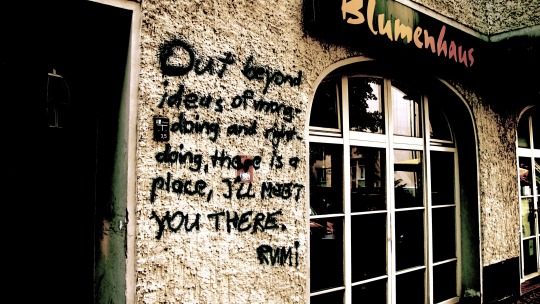 Blumenhaus
Out beyond
ideas of wrong-
doing and right
doing, there is a
place, I'LL MEET
YOU THERE.
RUMI